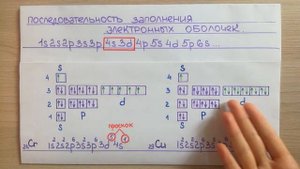 последовательность заполнения
электронных оболочек...
1s2s2p3s3p 4s3d 4p5s4d5p6s...
S
S
4
3
2
1
P
d
4
3
2
1
P
d
S
S
проскок
₂₄Cr 1s²2s²2p⁶3s²3p⁶3d 4s
₂₉Cu 1s²2s²2p⁶3s²3p⁶